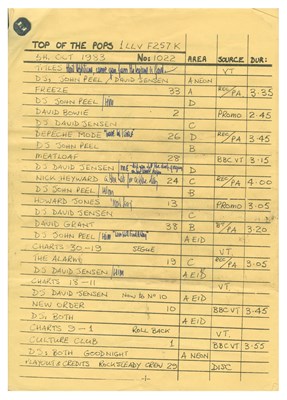 TOP OF THE POPS 1 LLV F257K
5th OCT 1983 No: 1022 AREA SOURCE DUR:
TITLES V.T.
DJs JOHN PEEL / DAVID JENSEN A NEON
FREEZE 33 A REC/PA 3.35
DJ JOHN PEEL / Him D
DAVID BOWIE 2 PROMO 2.45
DJ DAVID JENSEN C
DEPECHE MODE 26 D REC/PA 3.45
DJ JOHN PEEL B
MEATLOAF 28 BBC VT 3.15
DJ DAVID JENSEN D
NICK HEYWARD 24 C REC/PA 4.00
DJ JOHN PEEL / Him A EID
HOWARD JONES 13 PROMO 3.05
DJ DAVID JENSEN C
DAVID GRANT 38 B BT/PA 3.20
DJ JOHN PEEL / A EID
CHARTS 30-19 SEGUE VT.
THE ALARM 19 C REC/PA 3.05
DJ DAVID JENSEN / Him A EID
CHARTS 18-11 VT.
DJ DAVID JENSEN Now to No 10 A EID
NEW ORDER 10 BBC VT 3.45
DJs BOTH A EID
CHARTS 9-1 ROLL BACK V.T.
CULTURE CLUB 1 BBC VT 3.55
DJs BOTH GOODNIGHT A NEON
PLAYOUT & CREDITS ROCKSTEADY CREW 29 DISC
-1-